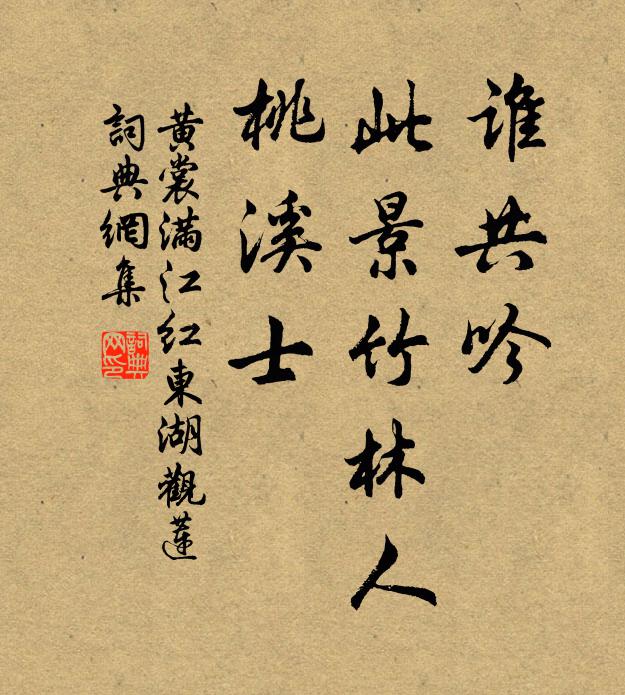 誰共吟
此景竹林人
桃溪士
黄裳滿江紅東湖觀蓮
詞典網集
詞典网印